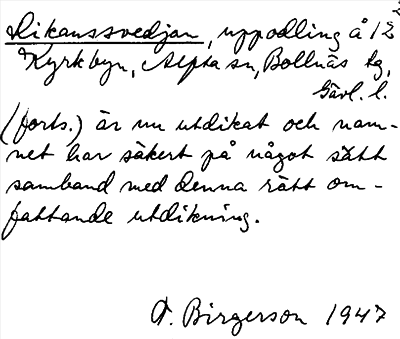 Dikanssvedjan, uppodling å 12
Kyrkbyn, Alfta sn, Bollnäs tg,
Gävl. l.
(forts.) är nu utdikat och nam-
net har säkert på något sätt
samband med denna rätt om-
fattande utdikning.
A. Birgerson 1947